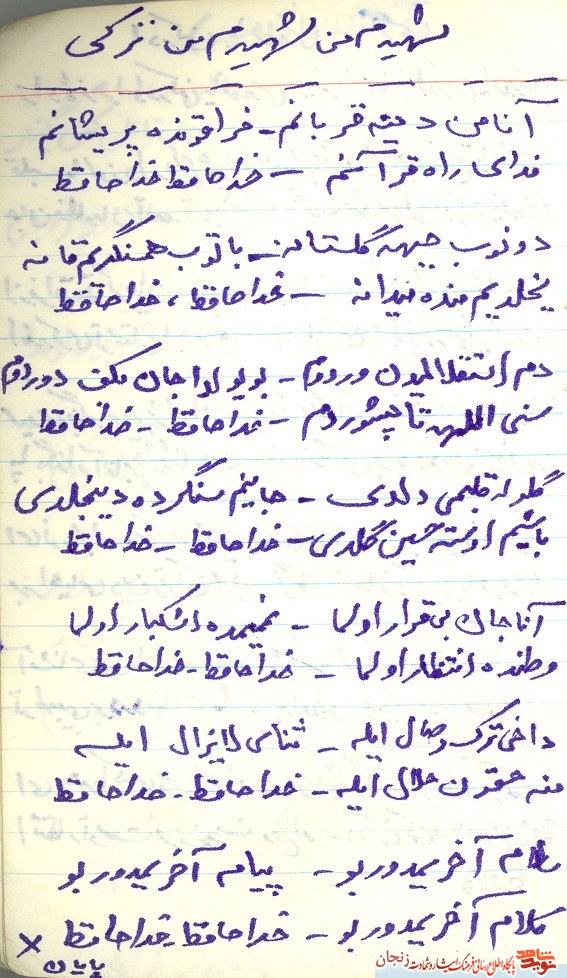 شهیدم من شهیدم من ترکی
آنا من دینه قربانم - فراقونده پریشانم
فدای راه قرآنم - خداحافظ خداحافظ
دونوب جبهه گلستانه - باتوب همسنگریم قانه
یخلدیم منده میدانه - خداحافظ، خداحافظ
دم استقلالیدن وروم - بو یولدا جان
سنی اللهه تاپشوردوم - خداحافظ - خداحافظ
گلوله قلبمی دلدی - جانیم سنگرده دینجلدی
باشیم اوسته حسین گلدی - خداحافظ - خداحافظ
آنا جان بی قرار اولما - غمیمده اشکبار اولما
وطنده انتظار اولما - خداحافظ - خداحافظ
داخی ترک وصال ایله - ثنای لایزال ایله
منه حقون حلال ایله - خداحافظ - خداحافظ
سلام آخریمدور بو - پیام آخریمدور بو
کلام آخریمدور بو - خداحافظ خداحافظ
پایان
نوید شاهد پایگاه اطلاع رسانی فرهنگ ایثار و شهادت زنجان